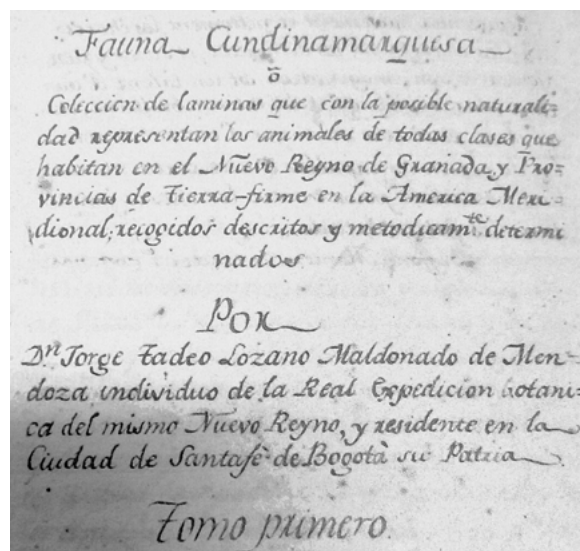 Fauna Cundinamarquesa
ō
Coleccion de laminas que con la posible naturali=
dad representan los animales de todas clases que
habitan en el Nuevo Reyno de Granada, y Pro=
vincias de Tierra-firme en la America Meri=
dional; recogidos descritos y metodicam.te determi
nados
Por
Dn Jorge Tadeo Lozano Maldonado de Men=
doza individuo de la Real Expedicion botani=
ca del mismo Nuevo Reyno, y residente en la
Ciudad de Santafé de Bogotà su Patria
Tomo primero.